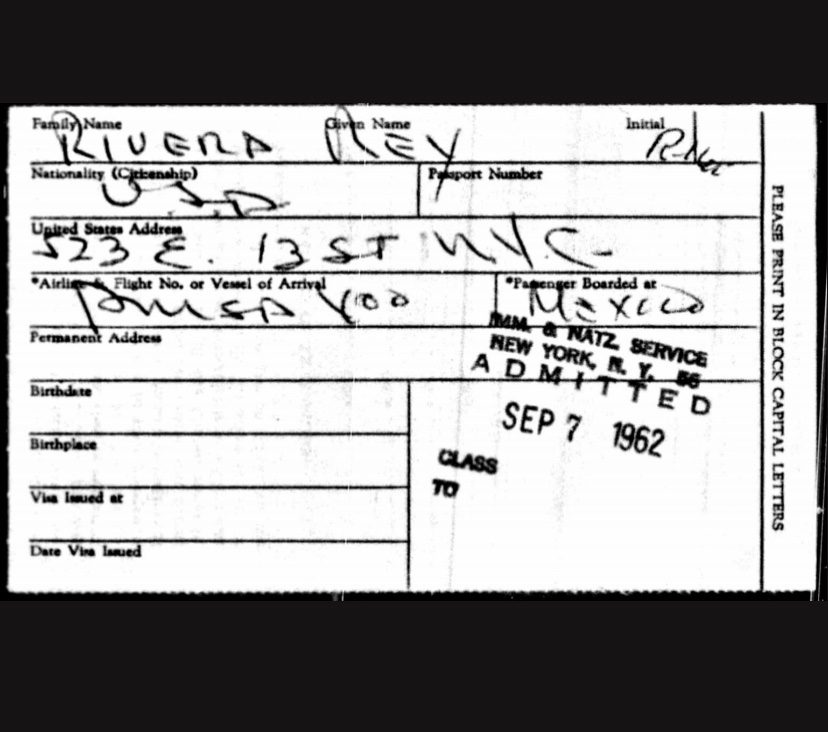 Family Name Given Name Initial
RIVERA REY
Nationality (Citizenship) Passport Number
U.S.A
United States Address
523 E. 13 ST N.Y.C.
*Airline & Flight No. or Vessel of Arrival *Passenger Boarded at
400 MEXICO
Permanent Address
IMM. & NATZ. SERVICE
NEW YORK, N. Y. 56
ADMITTED
SEP 7 1962
CLASS
TO
Birthdate
Birthplace
Visa Issued at
Date Visa Issued
PLEASE PRINT IN BLOCK CAPITAL LETTERS